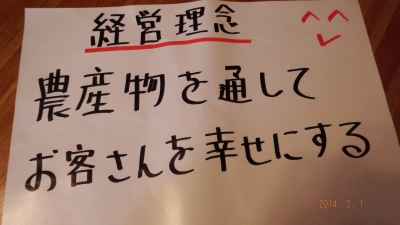 経営理念
農産物を通して
お客さんを幸せにする
2014. 3. 1